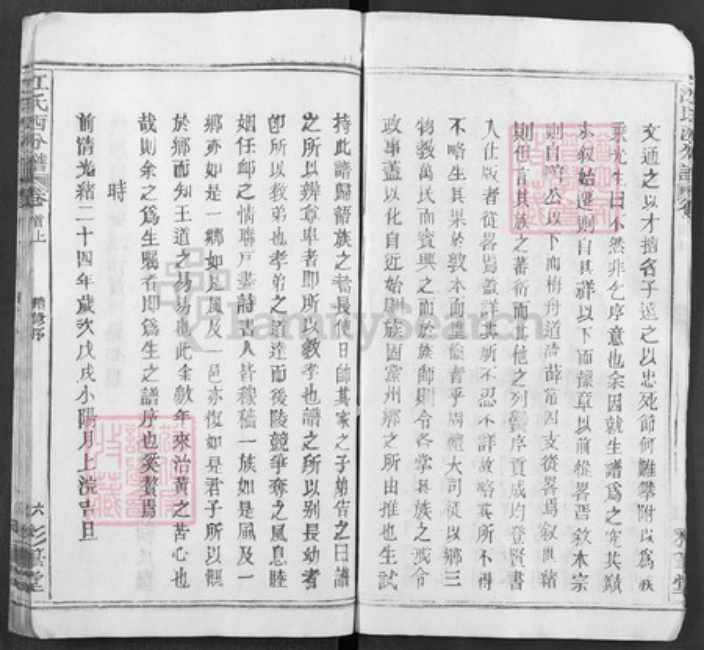 文通之以才擅名子逵之以忠死節何難攀附以為族
乘光生曰不然非乞序意也余因就生譜為之究其巔
末敘始遷則自其祥以下而豫章以前從畧晋敘本宗
則自 公以下而梅舟道 薛 四支從畧焉敘世緒
則但言其族之蕃衍而其他之列黌序貢成均登賢書
入仕版者從畧焉蓋詳其所不忍不詳故略其所不得
不略生其果於敦本而 倫者乎周禮大司徒以鄉三
物教萬民而賓興之而於族師則令各掌其族之戒令
政事蓋以化自近始則族固黨州鄉之所由推也生試
持此譜歸語族之耆長使日帥其家之子弟告之曰譜
之所以辨章卑者即所以教孝也譜之所以別長幼者
即所以教弟也孝弟之道達而後陵競爭奪之風息睦
姻任卹之情聯戶盡詩書人皆稼穡一族如是風及一
鄉亦如是一鄉如是風及一邑亦復如是君子所以觀
於鄉而知王道之易易也此余數年來治黃之苦心也
哉則余之為生囑者即為生之譜序也奚贅焉
時
前清光緒二十四年歲次戊戌小陽月上浣吉旦
江氏西分譜 卷首上
六
FamilySearch